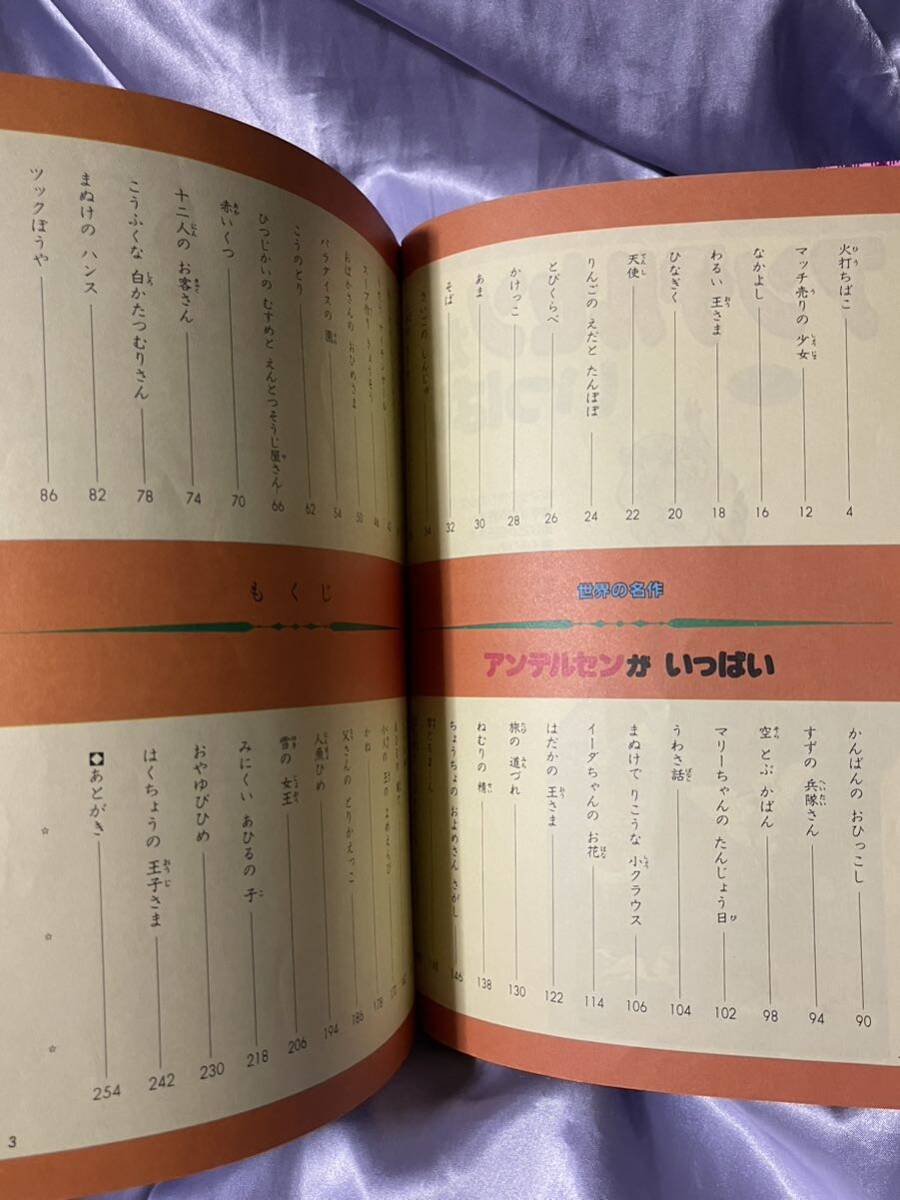 世界の名作
アンデルセンが いっぱい
もくじ
火打ちばこ 4
マッチ売りの 少女 12
なかよし 16
わるい 王さま 18
ひなぎく 20
天使 22
りんごの えだと たんぽぽ 24
とびくらべ 26
かけっこ 28
あま 30
そば 32
さいごの しんじゅ 34
おばかさんの おひめさま 50
パラダイスの 園 54
こうのとり 62
ひつじかいの むすめと えんとつそうじ屋さん 66
赤いくつ 70
十二人の お客さん 74
こうふくな 白かたつむりさん 78
まぬけの ハンス 82
ツックぼうや 86
かんばんの おひっこし 90
すずの 兵隊さん 94
空 とぶ かばん 98
マリーちゃんの たんじょう日 102
うわさ話 104
まぬけで りこうな 小クラウス 106
イーダちゃんの お花 114
はだかの 王さま 122
旅の 道づれ 130
ねむりの 精 138
ちょうちょの およめさん さがし 146
かね 178
父さんの とりかえっこ 186
人魚ひめ 194
雪の 女王 206
みにくい あひるの 子 218
おやゆびひめ 230
はくちょうの 王子さま 242
あとがき 254
3